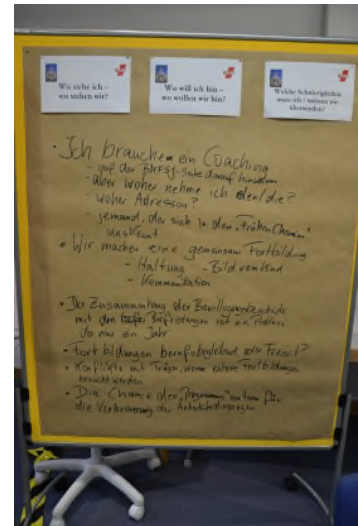 Wo stehe ich –
wo stehen wir?
Wo will ich hin –
wo wollen wir hin?
Welche Schwierigkeiten
muss ich / müssen wir
überwinden?
• Ich brauche ein Coaching
- auf der BMFSJ-Seite darauf hinweisen
- aber woher nehme ich den/die?
- woher Adressen?
- jemand, der sich in den „Frühen Chancen"
auskennt
• Wir machen eine gemeinsam Fortbildung
- Haltung - Bild vom Kind
- Kommunikation
• Der Zusammenhang der Bewilligungsbescheide
mit den Befristungen ist ein Problem
da nur ein Jahr
• Fortbildungen berufsbegleitend oder Freizeit?
• Konflikte mit Träger, wenn externe Fortbildungen
besucht werden
• Die Chance des „Programms" nutzen für
die Verbesserung der Arbeitsbedingungen